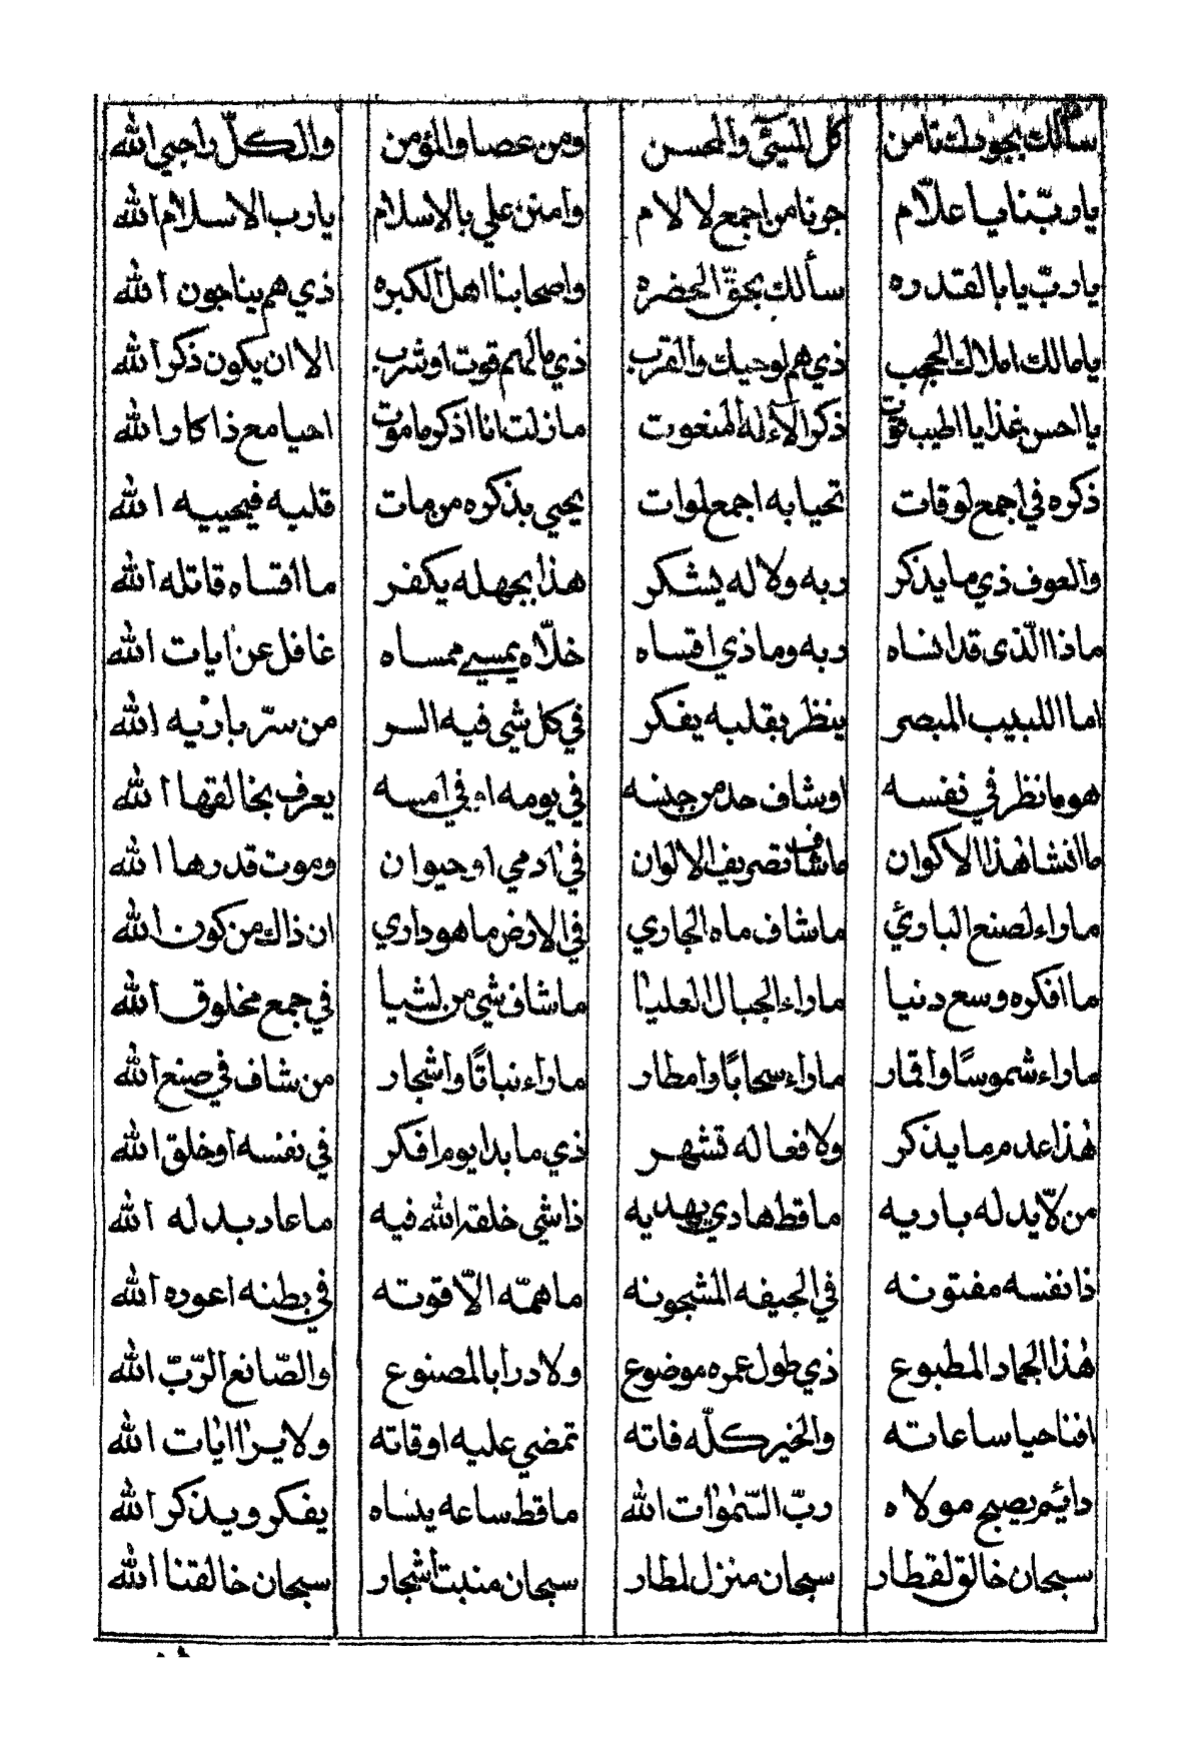 سألك بجودك تامن كل المسيئ والمحسن ومن عصا والمؤمن والكلّ راجي الله
يا ربّنا يا علاّم جرنا من اجمع لالام وامنن علي بالاسلام يا رب الاسلام الله
يا ربّ يا با القدره سألك بحقّ الحضره واصحابنا اهل الكبره ذي هم يناجون الله
يا مالك املاك الحجب ذي هم لوحيك والقرب ذي مالهم قوت اوشرب الا ان يكون ذكر الله
يا احسن غذا يا اطيب قوت ذكر الآءله المنعوت ما زلت انا اذكر ما موت احيا مع ذا كار الله
ذكره في اجمع لوقات تحيا به اجمع لوات يحيي بذكره من مات قلبه فيحييه الله
والعوف ذي ما يذكر ربه ولا له يشكر هذا بجهله يكفر ما اقساه قاتله الله
ماذا الّذي قد انساه ربه وماذي اقساه خلاّه يمسي ممساه غافل عن ايات الله
اما اللبيب المبصر ينظر بقلبه يفكر في كل شي فيه السر من سرّ باريه الله
هو ما نظر في نفسه اوشاف حد من جنسه في يومه او في امسه يعرف بخالقها الله
ما انشا هذا الاكوان ما شاف تصريف الالوان في ادمي او حيوان وموت قدرها الله
ما راء لصنع الباري ما شاف ماه الجاري في الارض ما هو داري ان ذاك من كون الله
ما افكره وسع دنيا ما راء الجبال العليا ما شاف شي من لشيا في جمع مخلوق الله
ما راء شموسًا واقمار ما راء سحابًا وامطار ما راء نباتًا واشجار من شاف في صنع الله
هذا عدم ما يذكر ولا فعاله تشهر ذي ما بدا يوم افكر في نفسه او خلق الله
من لاّ يدله باريه ما قط هادي يهديه ذا شي خلقه الله فيه ما عاد بدله الله
ذا نفسه مفتونه في الجيفه المشجونه ما همّه الاّ قوته في بطنه اعوره الله
هذا الجماد المطبوع ذي طول عمره موضوع ولا درا بالمصنوع والصّانع الرّبّ الله
افنا حيا ساعاته والخير كلّه فاته تمضي عليه اوقاته ولا يرا ايات الله
دايم يصيح مولاه ربّ السّموات الله ما قط ساعه ينساه يفكر ويذكر الله
سبحان خالق لقطار سبحان منزل لمطار سبحان منبت اشجار سبحان خالقنا الله